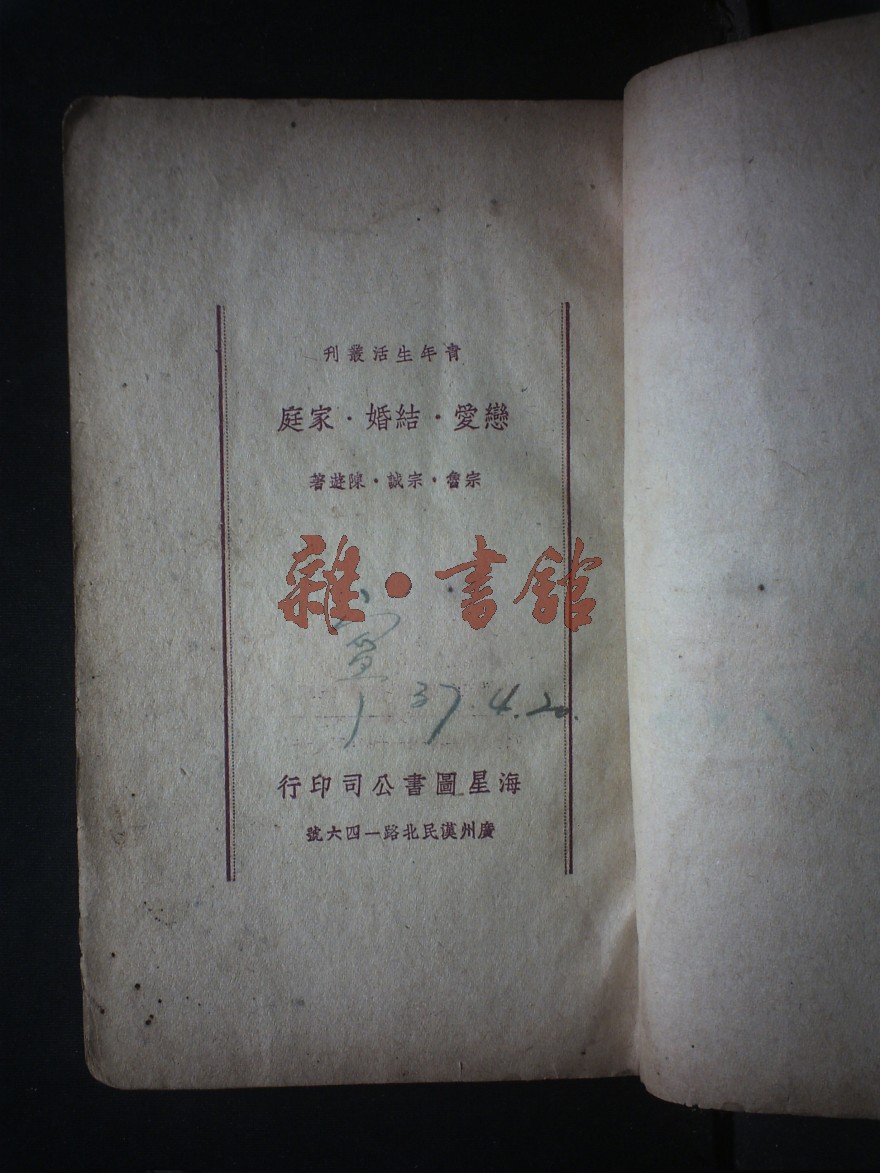 青年生活叢刊
戀愛・結婚・家庭
宗魯・宗誠・陳遊著
雜・書舘
37.4.20.
海星圖書公司印行
廣州漢民北路一四六號